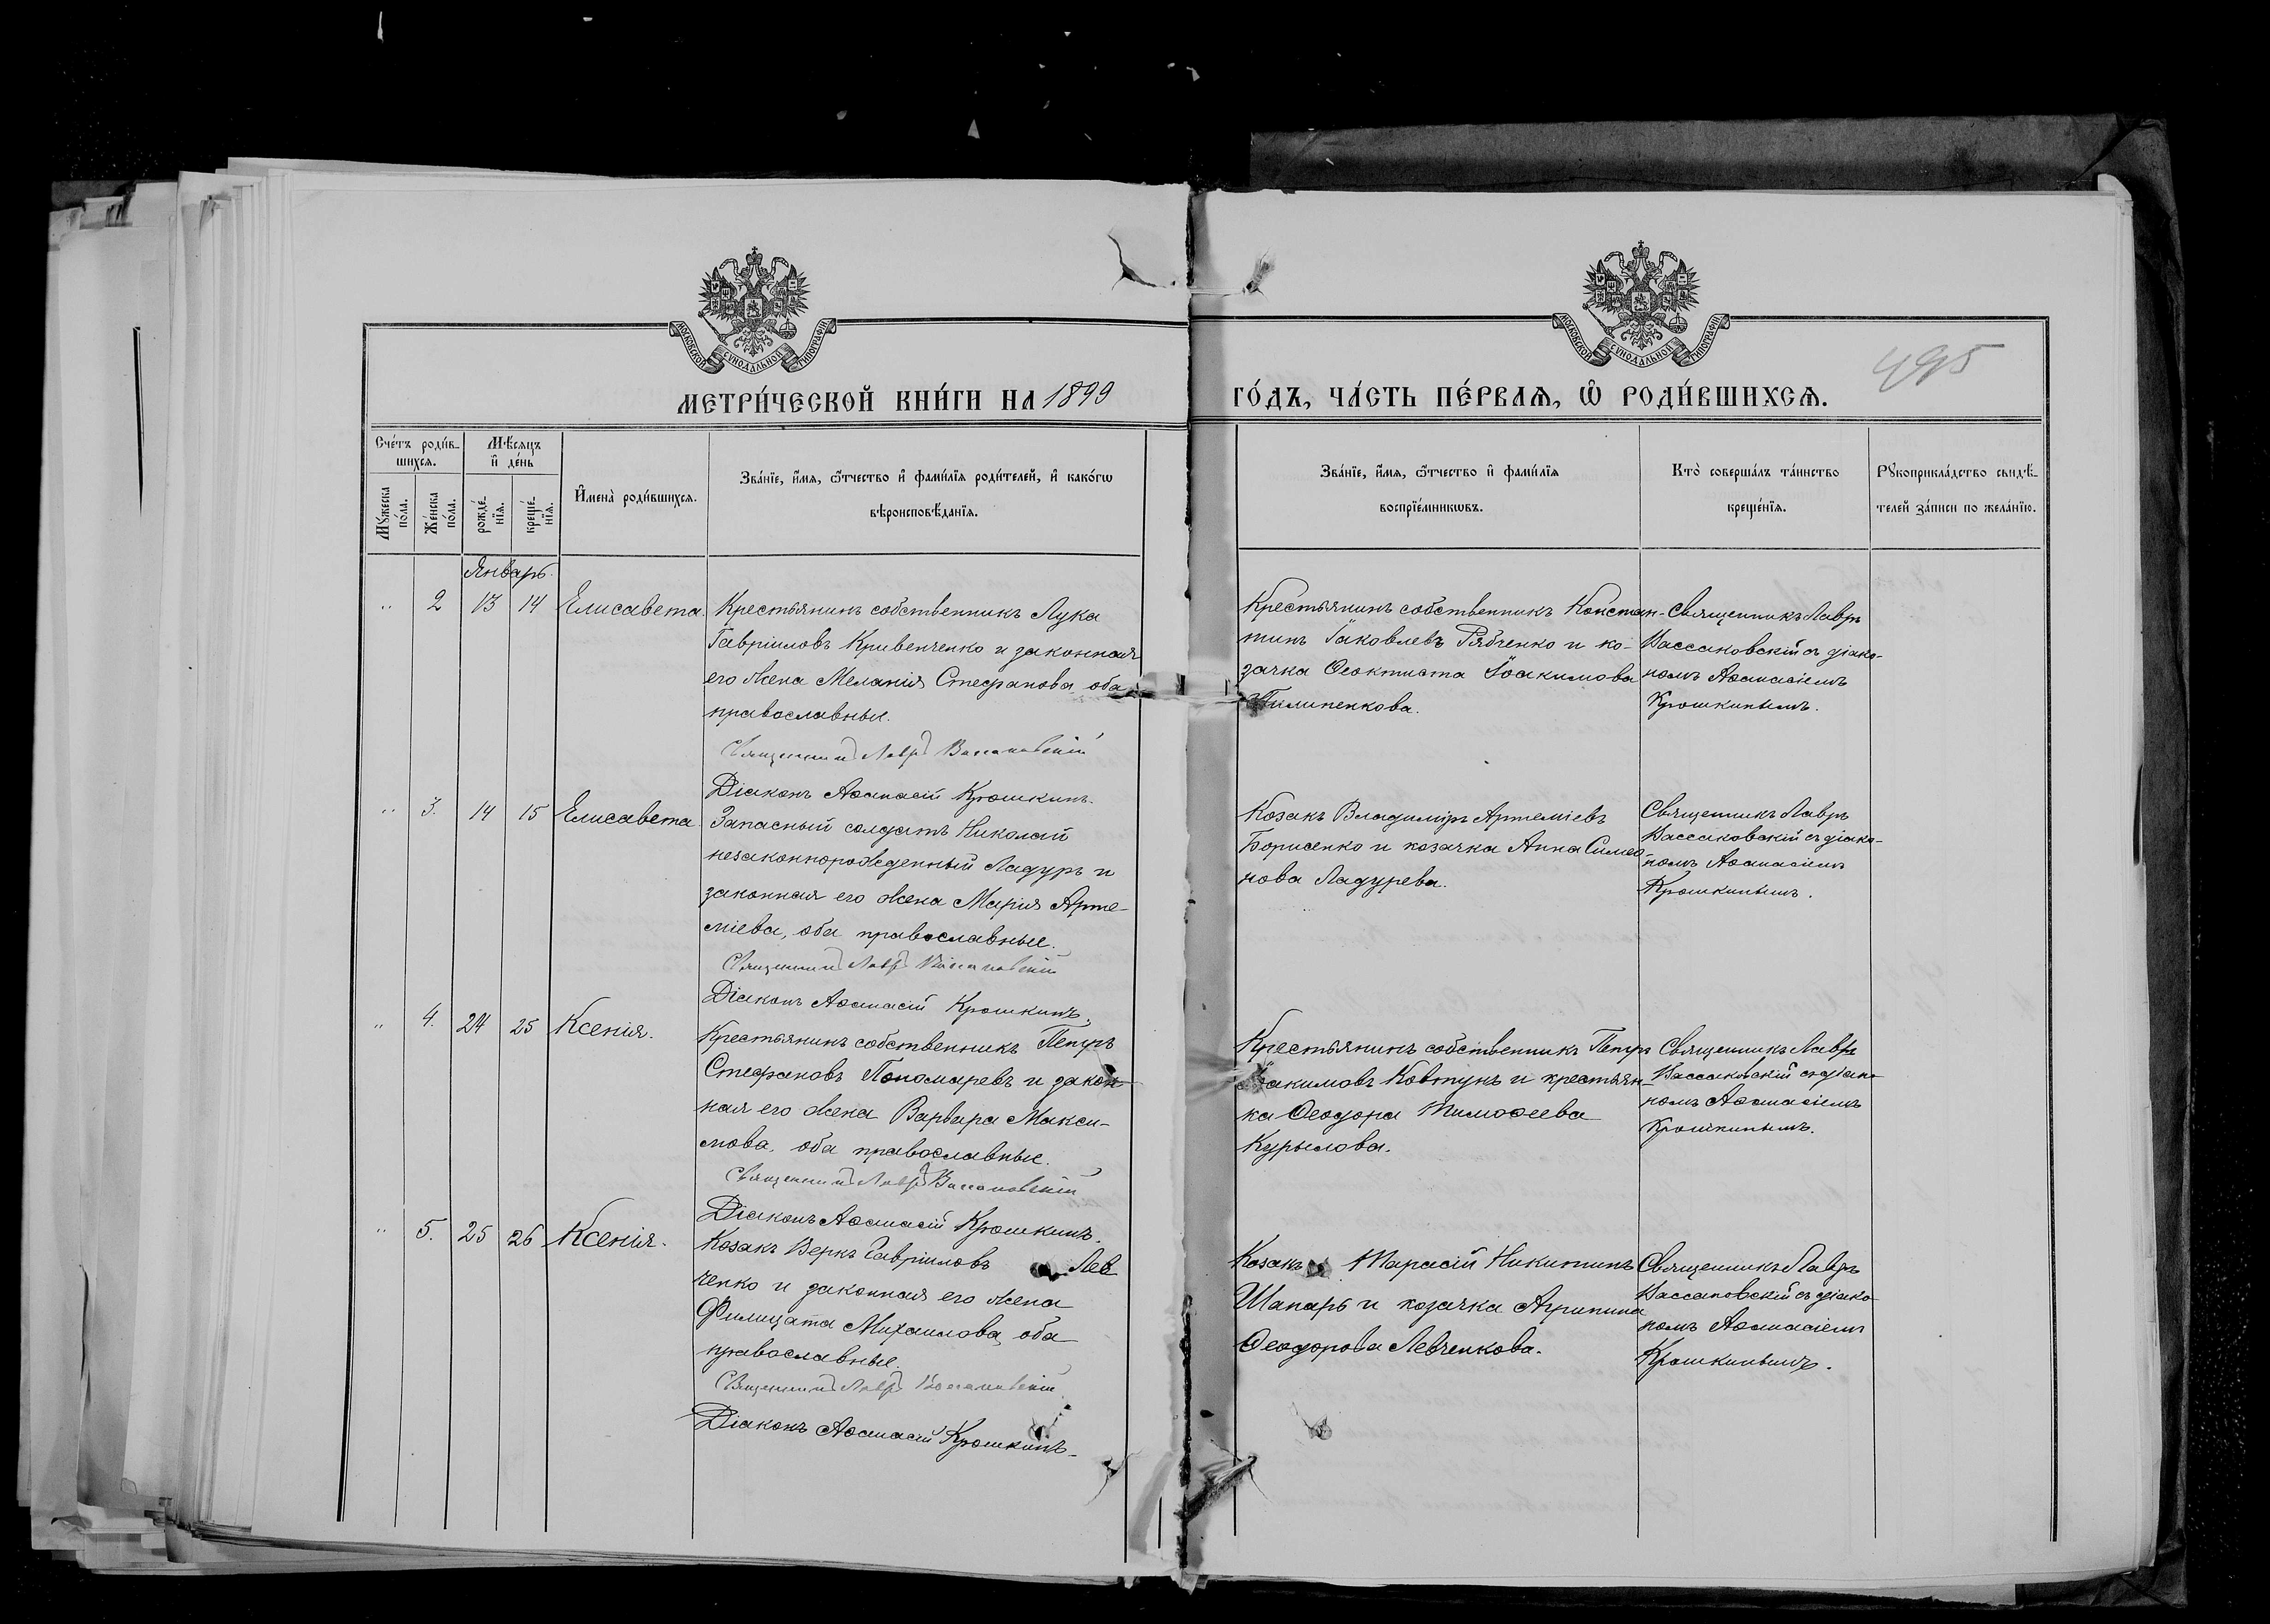 МОСКОВСКОЙ СѴНОДАЛЬНОЙ ТИПОГРАФІИ
МОСКОВСКОЙ СѴНОДАЛЬНОЙ ТИПОГРАФІИ
495
МЕТРИ́ЧЕСКОЙ КНИ́ГИ НА 1899 ГО́ДЪ, ЧА́СТЬ ПЕ́РВАЯ, Ѽ РОДИ́ВШИХСѦ.
Сче́тъ роди́в-
шихсѧ.
Мꙋ́жеска по́ла.
Же́нска по́ла.
Мѣ́сѧцъ
и҆ де́нь
рожде́-
нїѧ.
креще́-
нїѧ.
И҆мена̀ роди́вшихсѧ.
Зва́нїе, и҆́мѧ, ѻ҆́тчество и҆ фами́лїѧ роди́телей, и҆ како́гѡ
вѣроисповѣ́данїѧ.
Зва́нїе, и҆́мѧ, ѻ҆́тчество и҆ фами́лїѧ
воспрїе́мникѡвъ.
Кто̀ соверша́лъ та́инство
креще́нїѧ.
Рꙋкоприкла́дство свидѣ́-
телей за́писи по жела́нїю.
Январь.
" 2 13 14 Елисавета.
Крестьянинъ собственникъ Лука
Гавріиловъ Кривенченко и законная
его жена Меланія Стефанова оба
православные.
Священникъ Лавръ Вассаковскій
Діаконъ Аѳанасій Крошкинъ.
Крестьянинъ собственникъ Констан-
тинъ Іаковлевъ Рябченко и ко-
зачка Ѳеоктиста Іоакимова
Пилипенкова.
Священникъ Лавръ
Вассаковскій съ діако-
номъ Аѳанасіемъ
Крошкинымъ.
" 3. 14 15 Елисавета
Запасный солдатъ Николай
незаконнорожденный Ладуръ и
законная его жена Марія Арте-
міева, оба православные.
Священникъ Лавръ Вассаковскій
Діаконъ Аѳанасій Крошкинъ.
Козакъ Владиміръ Артеміевъ
Борисенко и козачка Анна Симео-
нова Ладурева.
Священникъ Лавръ
Вассаковскій съ діако-
номъ Аѳанасіемъ
Крошкинымъ.
" 4. 24 25 Ксенія.
Крестьянинъ собственникъ Петръ
Стефановъ Пономаревъ и закон-
ная его жена Варвара Макси-
мова, оба православные.
Священникъ Лавръ Вассаковскій
Діаконъ Аѳанасій Крошкинъ.
Крестьянинъ собственникъ Петръ
Іоакимовъ Ковтунъ и крестьян-
ка Ѳеодора Тимоѳеева
Курылова.
Священникъ Лавръ
Вассаковскій съ діако-
номъ Аѳанасіемъ
Крошкинымъ.
" 5. 25 26 Ксенія.
Козакъ Веркъ Гавріиловъ Лев
ченко и законная его жена
Филицата Михаилова, оба
православные.
Священникъ Лавръ Вассаковскій
Діаконъ Аѳанасій Крошкинъ.
Козакъ Тарасій Никитинъ
Шапарь и козачка Агрипина
Ѳеодорова Левченкова.
Священникъ Лавръ
Вассаковскій съ діако-
номъ Аѳанасіемъ
Крошкинымъ.